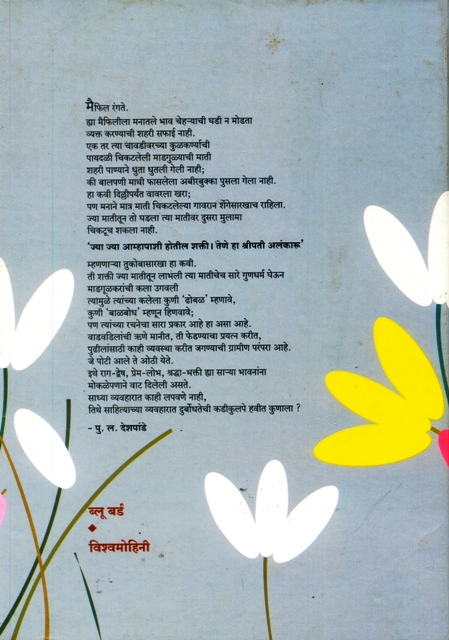 मैफिल रंगते.
ह्या मैफिलीला मनातले भाव चेहऱ्याची घडी न मोडता
व्यक्त करण्याची शहरी सफाई नाही.
एक तर त्या चावडीवरच्या कुळकर्ण्याची
पायदळी चिकटलेली माडगुळ्याची माती
शहरी पाण्याने धुता धुतली गेली नाही;
की बालपणी माथी फासलेला अबीरबुक्का पुसला गेला नाही.
हा कवी दिल्लीपर्यंत वावरला खरा;
पण मनाने मात्र माती चिकटलेल्या गावरान शेंगेसारखाच राहिला.
ज्या मातीतून तो घडला त्या मातीवर दुसरा मुलामा
चिकटूच शकला नाही.
'ज्या ज्या आम्हापाशी होतील शक्ती। तेणे हा श्रीपती अलंकारू'
म्हणणाऱ्या तुकोबासारखा हा कवी.
ती शक्ती ज्या मातीतून लाभली त्या मातीचेच सारे गुणधर्म घेऊन
माडगूळकरांची कला उगवली
त्यामुळे त्यांच्या कलेला कुणी 'ढोबळ' म्हणावे,
कुणी 'बाळबोध' म्हणून हिणवावे;
पण त्यांच्या रचनेचा सारा प्रकार आहे हा असा आहे.
वाडवडिलांची ऋणे मानीत, ती फेडण्याचा प्रयत्न करीत,
पुढीलांसाठी काही व्यवस्था करीत जगण्याची ग्रामीण परंपरा आहे.
जे पोटी आले ते ओठी येते.
इथे राग-द्वेष, प्रेम-लोभ, श्रद्धा-भक्ती ह्या साऱ्या भावनांना
मोकळेपणाने वाट दिलेली असते.
साध्या व्यवहारात काही लपवणे नाही,
तिथे साहित्याच्या व्यवहारात दुर्बोधतेची कडीकुलपे हवीत कुणाला ?
- पु. ल. देशपांडे
ब्लू बर्ड
विश्वमोहिनी